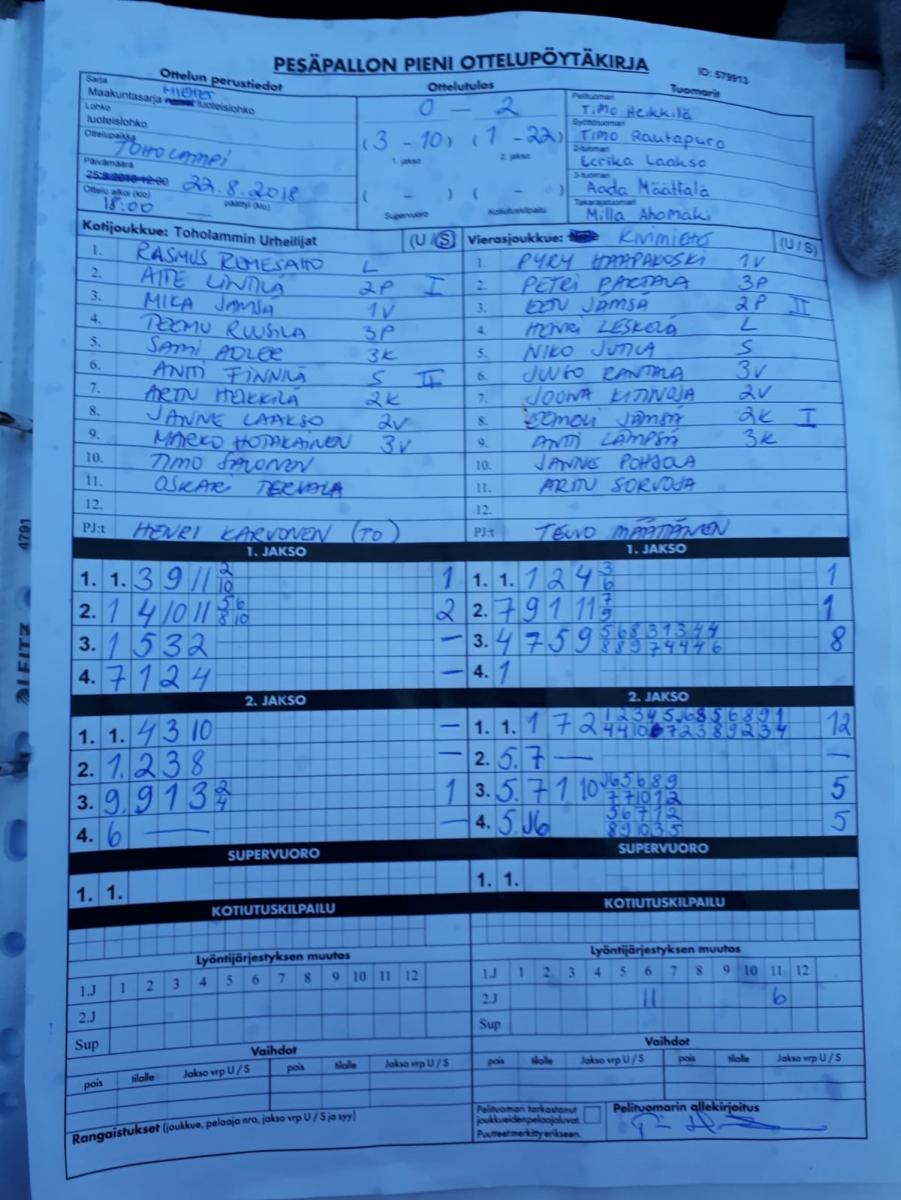 PESÄPALLON PIENI OTTELUPÖYTÄKIRJA
ID: 579913
Ottelun perustiedot
Sarja
Maakuntasarja MIEHET luoteislohko
Lohko
luoteislohko
Ottelupaikka
TOHOLAMPI
Päivämäärä
22.8.2018
Ottelu alkoi (klo) päättyi (klo)
18:00
Ottelutulos
0 - 2
(3 - 10) (1 - 22)
1. jakso 2. jakso
( - ) ( - )
Supervuoro Kotiutuskilpailu
Tuomarit
Pelituomari
Timo Heikkilä
Syöttötuomari
Timo Rautapuro
2-tuomari
Eerika Laakso
3-tuomari
Aada Määttälä
Takarajatuomari
Milla Ahomäki
Kotijoukkue: Toholammin Urheilijat (U / S)
1. RASMUS L
2. ATTE LINTILÄ 2P I
3. MIKA JÄMSÄ 1V
4. TEEMU RUUSILA 3P
5. SAMI ADLER 3K
6. ANTTI FINNILÄ S II
7. ARTTU HEIKKILÄ 2K
8. JANNE LAAKSO 2V
9. MARKO HOTAKAINEN 3V
10. TIMO SALONEN
11. OSKARI TERVALA
12.
PJ:t HENRI KARVONEN (TO)
Vierasjoukkue: Kivimiehet (U / S)
1. PYRY HAAPAKOSKI 1V
2. PETRI PAKTALA 3P
3. EETU JÄMSÄ 2P II
4. HENRI LESKELÄ L
5. NIKO JUTILA S
6. JUUSO RANTALA 3V
7. JOONA KITINOJA 2V
8. JÄMSÄ 2K I
9. ANTTI LÄMPSÄ 3K
10. JANNE POHJOLA
11. ARTTU SORVOJA
12.
PJ:t TEUVO MÄÄTTÄNEN
1. JAKSO
1. 1. 3 9 11 2 1
10
2. 1 4 10 11 5 6 2
8 10
3. 1 5 3 2 —
4. 7 1 2 4 —
1. JAKSO
1. 1. 1 2 4 3 1
6
2. 7 9 1 11 7 1
9
3. 4 7 5 9 5 6 8 3 1 3 4 4 8
8 8 9 7 4 4 4 6
4. 1
2. JAKSO
1. 1. 4 3 10 —
2. 1. 2 3 8 —
3. 9. 9 1 3 2 1
4
4. 6 — —
2. JAKSO
1. 1. 1 7 2 12
2. 5. 7 — —
3. 5. 7 1 10 J6 5 6 8 9 5
7 7 10 1 2
4. 5. J6 5 6 7 1 2 5
8 9 10 3 5
SUPERVUORO
1. 1.
SUPERVUORO
1. 1.
KOTIUTUSKILPAILU
KOTIUTUSKILPAILU
Lyöntijärjestyksen muutos
1.J 1 2 3 4 5 6 7 8 9 10 11 12
2.J
Sup
Lyöntijärjestyksen muutos
1.J 1 2 3 4 5 6 7 8 9 10 11 12
2.J 11 6
Sup
Vaihdot
pois tilalle Jakso vrp U / S pois tilalle Jakso vrp U / S
Vaihdot
pois tilalle Jakso vrp U / S pois tilalle Jakso vrp U / S
Rangaistukset (joukkue, pelaaja nro, jakso vrp U / S ja syy)
Pelituomari tarkastanut
joukkueiden pelaajaluvat.
Puutteet merkitty erikseen.
Pelituomarin allekirjoitus
LEITZ 4791